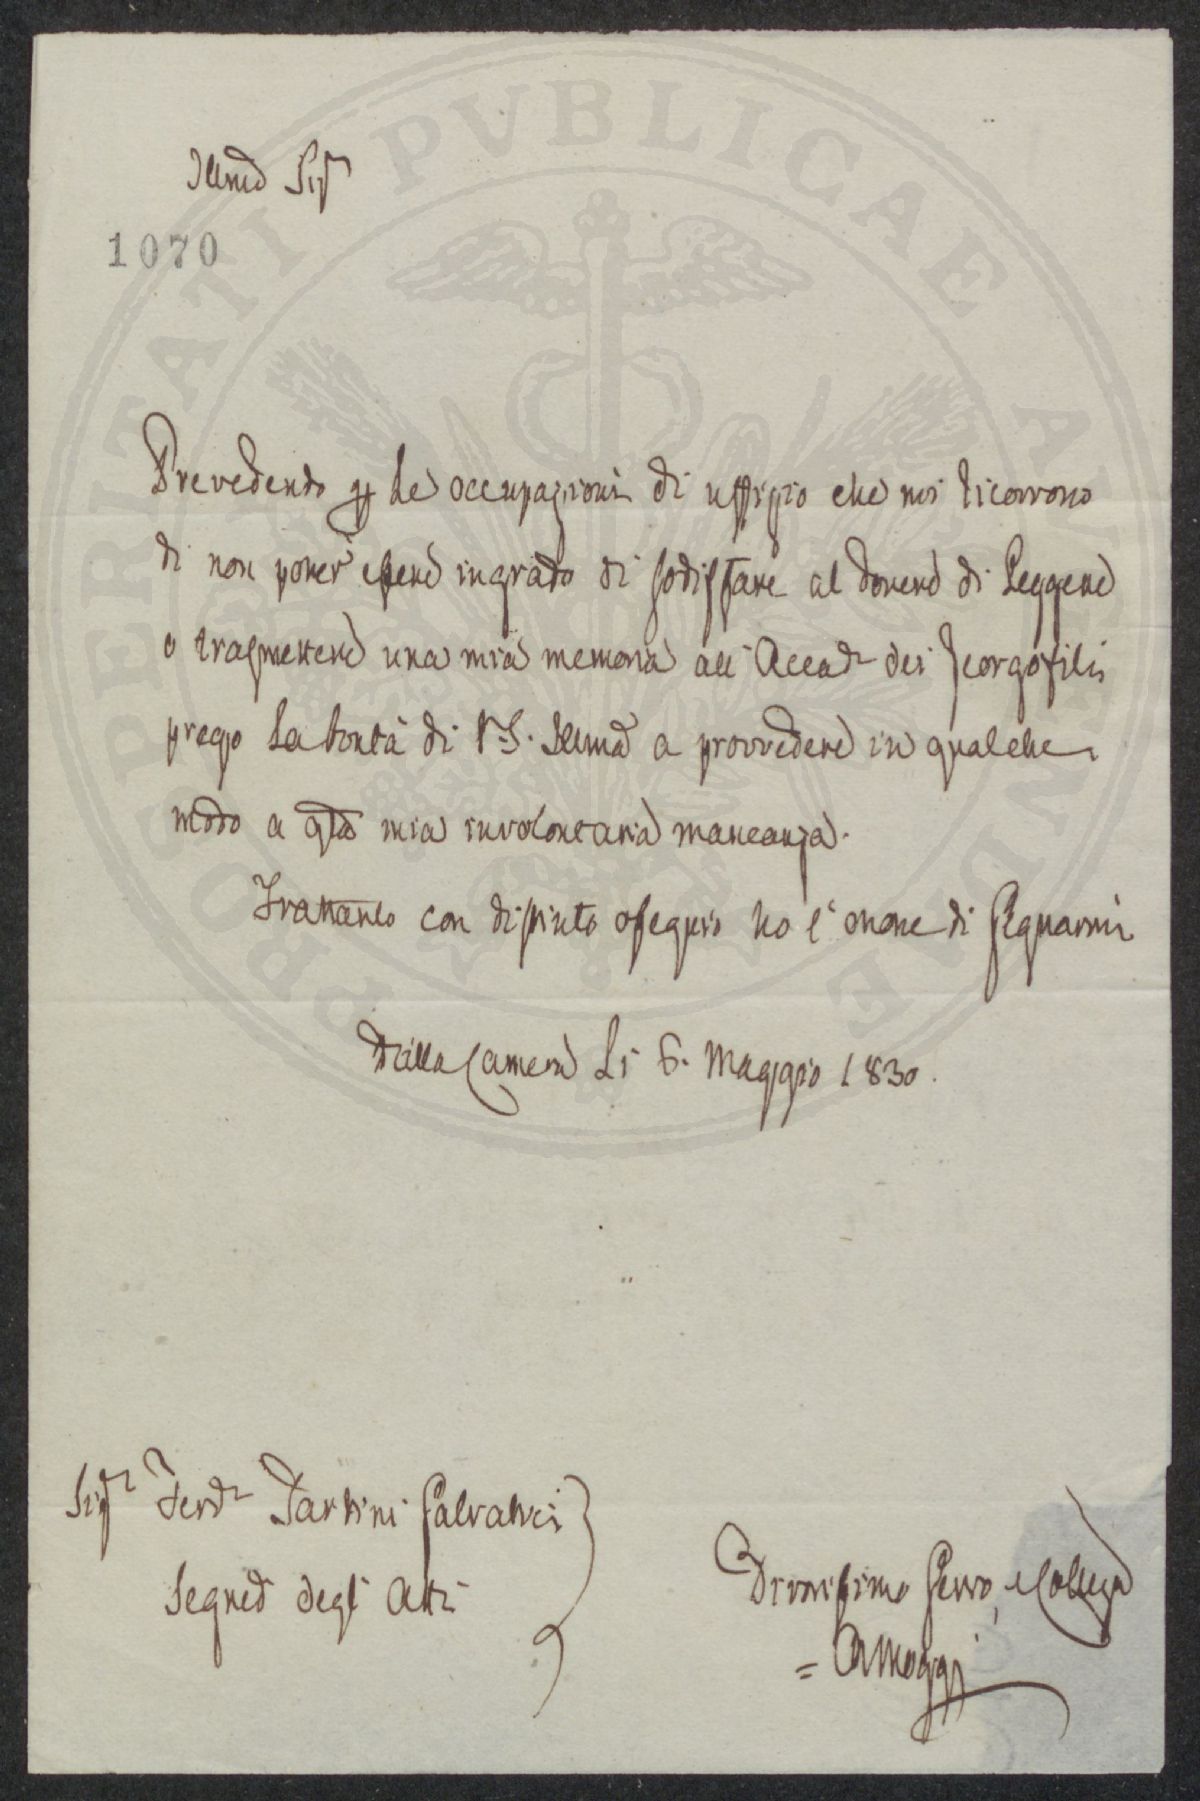 Illmo Sigr
1070
Prevedendo p le occupazioni di uffizio che mi ricorrono
di non poter essere in grado di sodisfare al dovere di Leggere
o trasmettere una mia memoria all' Accada dei Georgofili
prego la bontà di V. S. Illma a provvedere in qualche
modo a qta mia involontaria mancanza.
Frattanto con distinto ossequio ho l' onore di segnarmi
Dalla Camera Li 6. Maggio 1830.
Sigr Ferdo Tartini Salvatici
Segreto degli Atti
Devmo Servo, e Collega
= A Moggi
PROSPERITATI PVBLICAE AVGENDAE